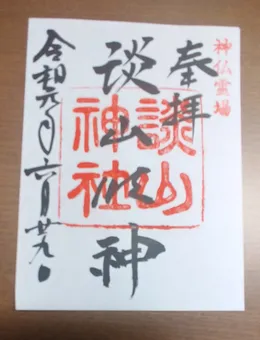 神仏霊場
奉拝
談山明神
談山
神社
令和元年六月廿九日